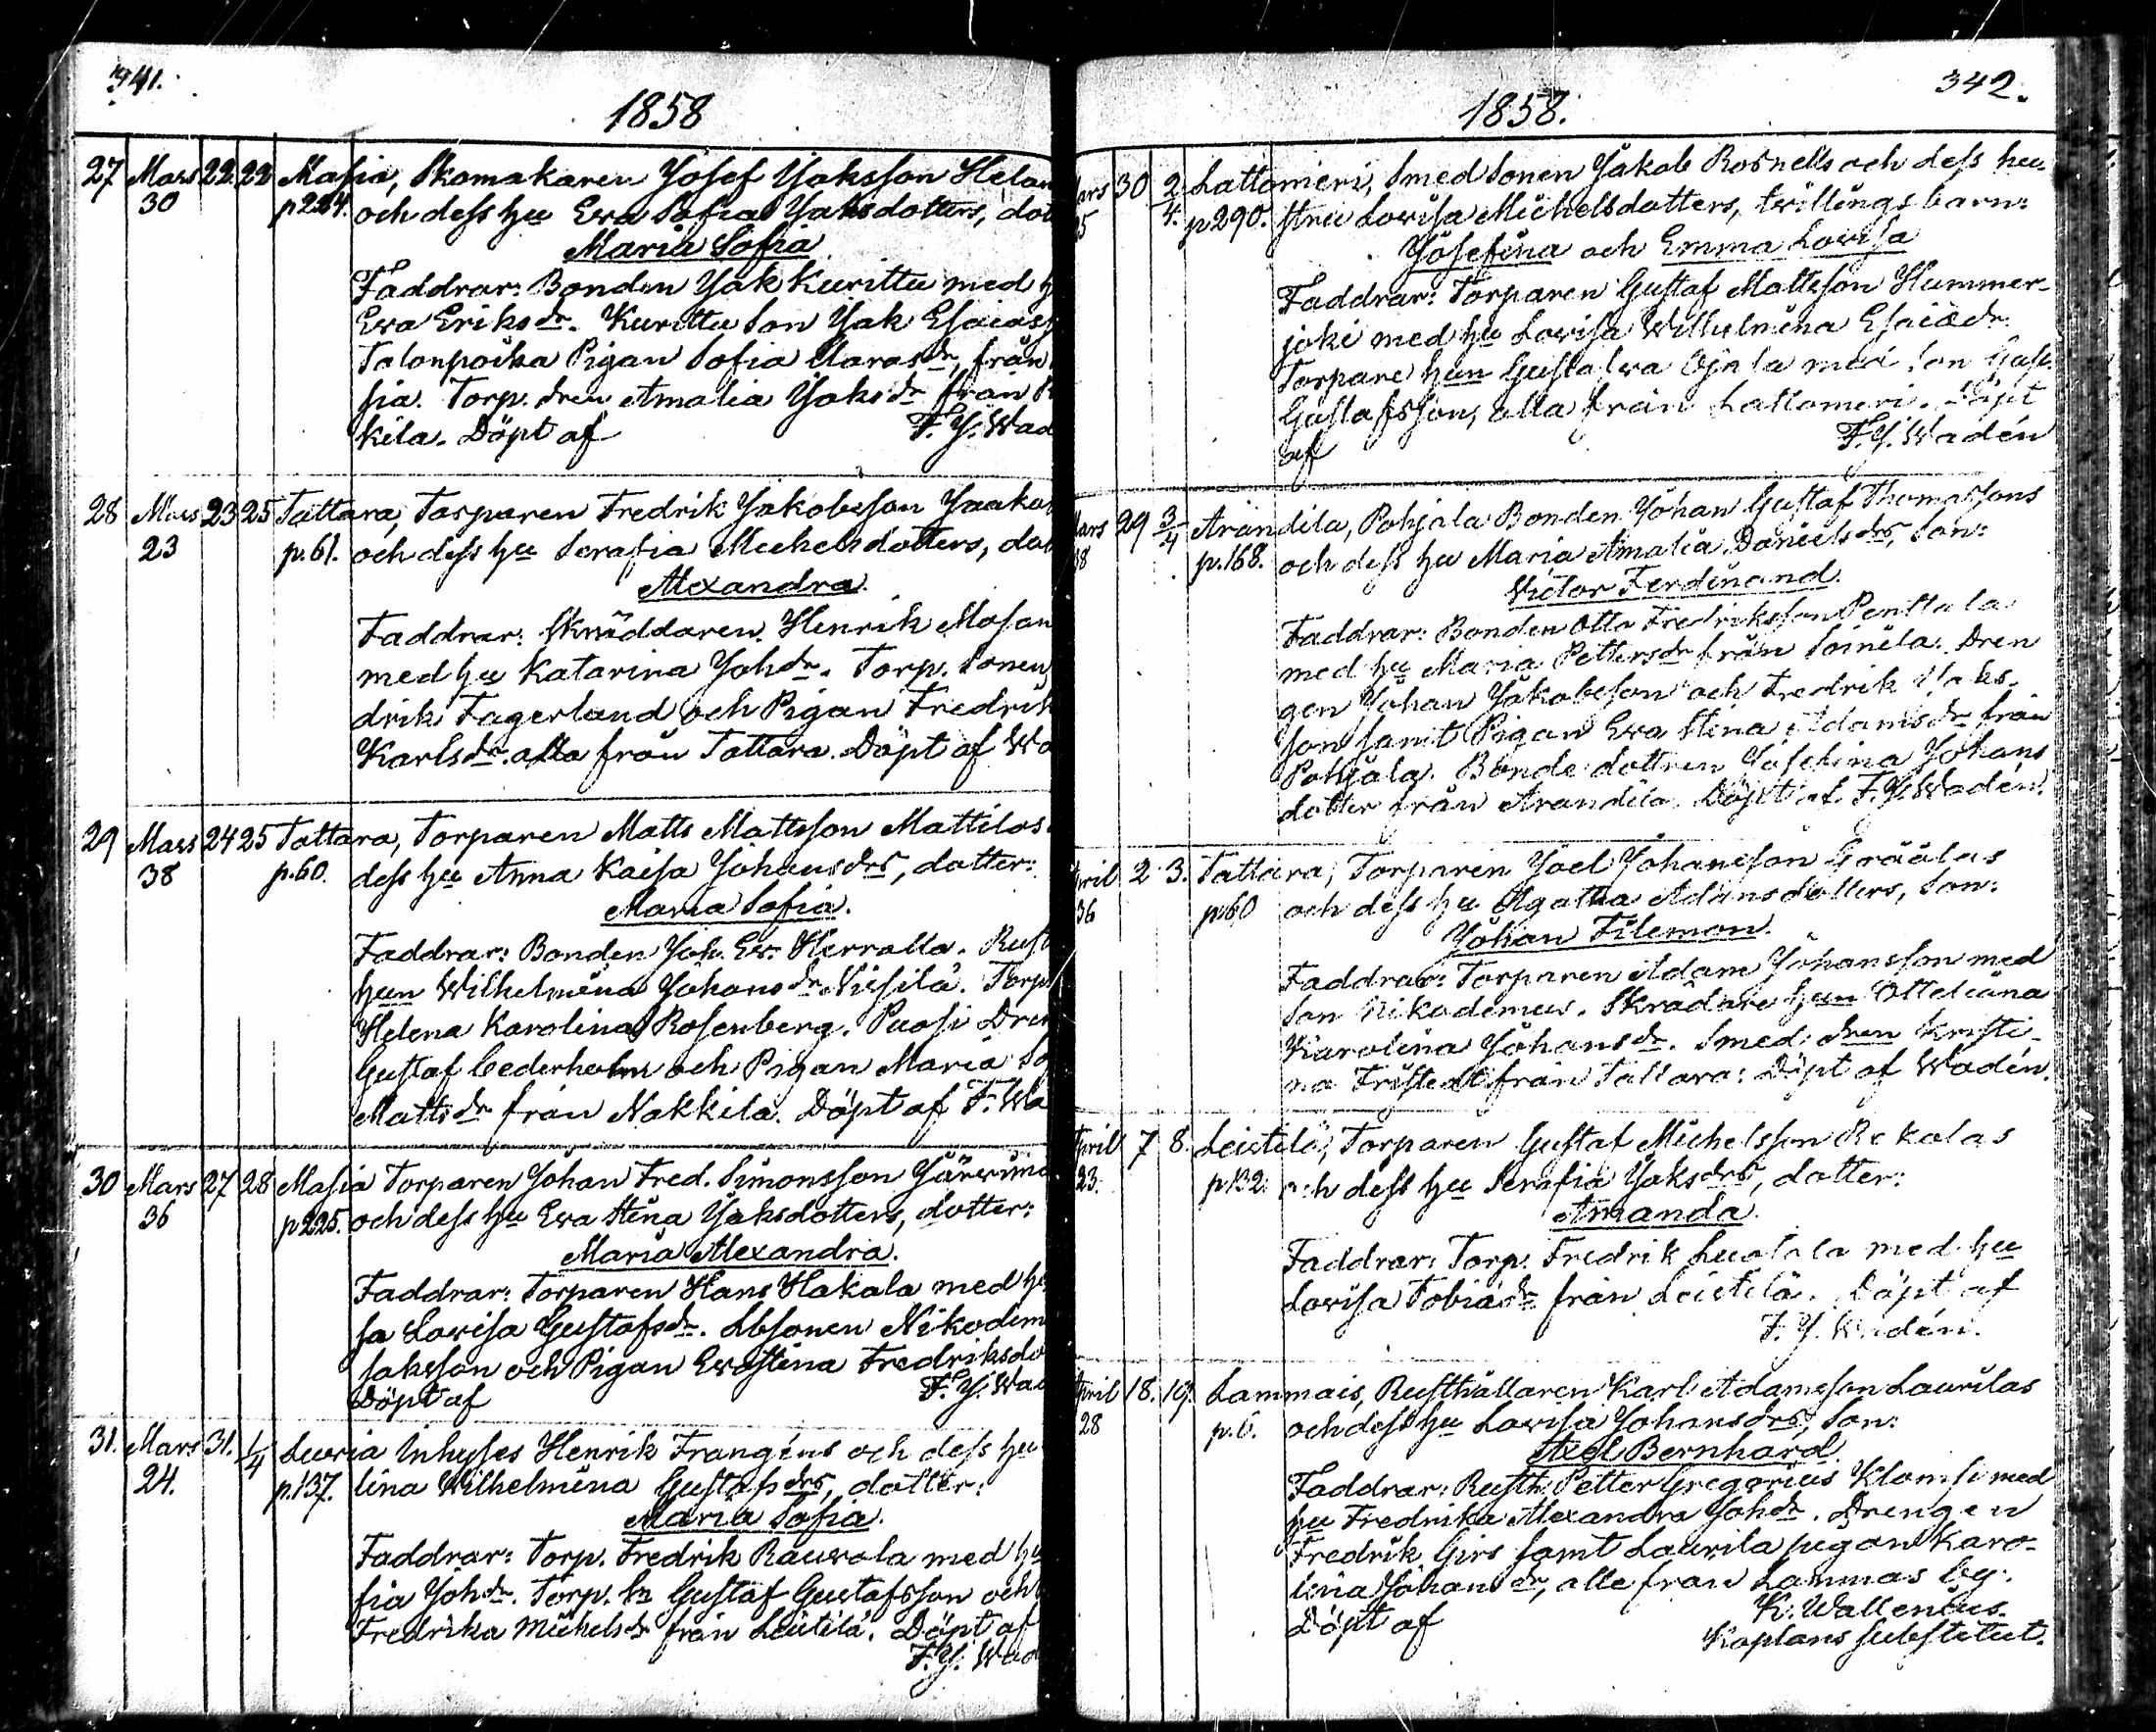 341.
1858
27 Mars 22 22 Masia, Skomakaren Josef Jaksson Helan
30 p 224. och dess hu Eva Sofia Jaksdotters, dot
Maria Sofia
Faddrar: Bonden Jak Kurittu med h
Eva Eriksdr. Kurittu Son Jak Esaiass
Talonpoika Pigan Sofia dr, från
sia. Torp. dren Amalia Jaksdr från
kila. Döpt af F. J. Wad
28 Mars 23 25 Tattara, Torparen Fredrik Jakobsson Jaako
23 p. 61. och dess hu Serafia Michelsdotters, dot
Alexandra.
Faddrar: Skräddaren Henrik Moson
med hu Katarina Johdr. Torp. Sonen
drik Fagerlund och Pigan Fredrik
Karlsdr. alla från Tattara. Döpt af Wa
29 Mars 24 25 Tattara, Torparen Matts Mattsson Mattilas
38 p. 60. dess hu Anna Kaisa Johansdrs, dotter:
Maria Sofia.
Faddrar: Bonden Joh. Er. Herralla. Rust
hun Wilhelmina Johansdr Niesilä. Torp
Helena Karolina Rosenberg. Puosi Dren
Gustaf Cederholm och Pigan Maria So
Mattsdr från Nakkila. Döpt af F. Wa
30 Mars 27 28 Masia Torparen Johan Fred. Simonsson Järwine
36 p 225. och dess hu Eva Stina Jaksdotters, dotter:
Maria Alexandra.
Faddrar: Torparen Hans Hakala med h
sa Lovisa Gustafsdr. Nikodem
Jaksson och Pigan Evastina Fredriksdo
Döpt af F. J. Wad
31. Mars 31. 1/4 Luoria Inhyses Henrik Frangéns och dess hu
24. p. 137. lina Wilhelmina Gustafsdrs, dotter:
Maria Sofia.
Faddrar: Torp. Fredrik Rauwola med hu
fia Johdr. Torp. Sn Gustaf Gustafsson och
Fredrika Michelsdr från Leistilä. Döpt af
F. J. Wad
342.
1858.
ars 30 2/4. Lattomeri, Smed Sonen Jakob Rosnells och dess hu-
25 p 290. stru Lovisa Michelsdotters, twillings barn:
Josefina och Emma Lovisa
Faddrar: Torparen Gustaf Mattsson Hummer-
joki med hu Lovisa Wilhelmina Esaiædr.
Torpare hun Gustafva Ojala med Son Gust.
Gustafsson, alla från Lattomeri. Döpt
af F. J. Wadén
ars 29 3/4 Arandila, Pohjala Bonden Johan Gustaf Thomassons
38 p. 168. och dess hu Maria Amalia Danielsdrs, Son:
Victor Ferdinand.
Faddrar: Bonden Otto Fredriksson Penttala
med hu Maria Pettersdr från Soinila. Dren
gen Johan Jakobsson och Fredrik Jaks-
son samt Pigan Eva Stina Adamsdr från
Pohjala. Bonde dottren Josefina Johans
dotter från Arandila. Döpt af F. J. Wadén
pril 2 3. Tattara, Torparen Joel Johansson Gräälas
36 p 60 och dess hu Agatha Adamsdotters, Son:
Johan Filemon.
Faddrar: Torparen Adam Johansson med
Son Nikodemus. Skrädare hun Otteliana
Karolina Johansdr. Smed dren Kristi-
na Fristedt från Tattara: Döpt af Wadén.
pril 7 8. Leistilä, Torparen Gustaf Michelsson Rekolas
23. p 132. och dess hu Serafia Jaksdrs, dotter:
Amanda.
Faddrar: Torp. Fredrik Luotola med hu
Lovisa Tobiædr från Leistilä. Döpt af
F. J. Wadén.
pril 18. 19. Lammais, Rusthållaren Karl Adamsson Laurilas
28 p. 6. och dess hu Lovisa Johansdrs, Son:
Axel Bernhard.
Faddrar: Rusth. Petter Gregorius Klomsi med
hu Fredrika Alexandra Johdr. Drengen
Fredrik Girs samt Laurila pigan Karo-
lina Johansdr, alle från Lammas by.
Döpt af K. Wallenius.
Kaplans substitut.